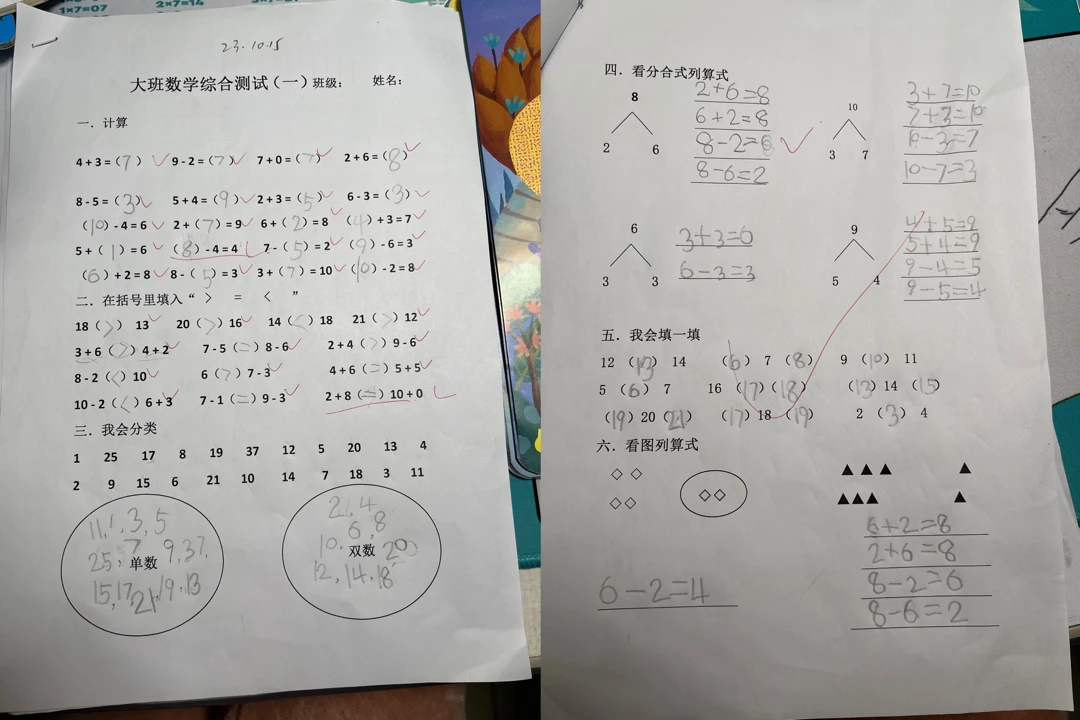 1×7=07
2×7=14
23.10.15
大班数学综合测试（一）班级： 姓名：
一．计算
4+3=（7） 9-2=（7） 7+0=（7） 2+6=（8）
8-5=（3） 5+4=（9） 2+3=（5） 6-3=（3）
（10）-4=6 2+（7）=9 6+（2）=8 （4）+3=7
5+（1）=6 （8）-4=4 7-（5）=2 （9）-6=3
（6）+2=8 8-（5）=3 3+（7）=10 （10）-2=8
二．在括号里填入“ > = < ”
18（>）13 20（>）16 14（<）18 21（>）12
3+6（>）4+2 7-5（=）8-6 2+4（>）9-6
8-2（<）10 6（>）7-3 4+6（=）5+5
10-2（<）6+3 7-1（=）9-3 2+8（=）10+0
三．我会分类
1 25 17 8 19 37 12 5 20 13 4
2 9 15 6 21 10 14 7 18 3 11
11,1,3,5
25,7 9,37,
单数
15,17,21,19,13
2,4
6,8
10, 20
双数
12,14,18
四．看分合式列算式
8
2 6
2+6=8
6+2=8
8-2=6
8-6=2
10
3 7
3+7=10
7+3=10
10-3=7
10-7=3
6
3 3
3+3=6
6-3=3
9
5 4
4+5=9
5+4=9
9-4=5
9-5=4
五．我会填一填
12（13）14 （6）7（8） 9（10）11
5（6）7 16（17）（18） （13）14（15）
（19）20（21） （17）18（19） 2（3）4
六．看图列算式
6-2=4
6+2=8
2+6=8
8-2=6
8-6=2